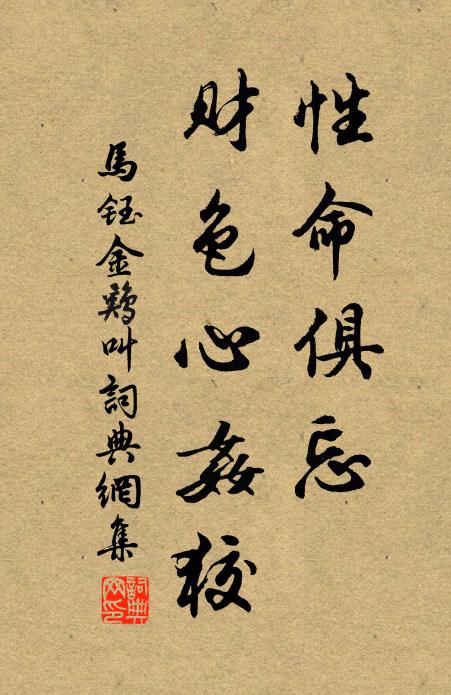 性命俱忘
财色心姦狡
馬鈺金鷄叫詞典網集
詞典网印